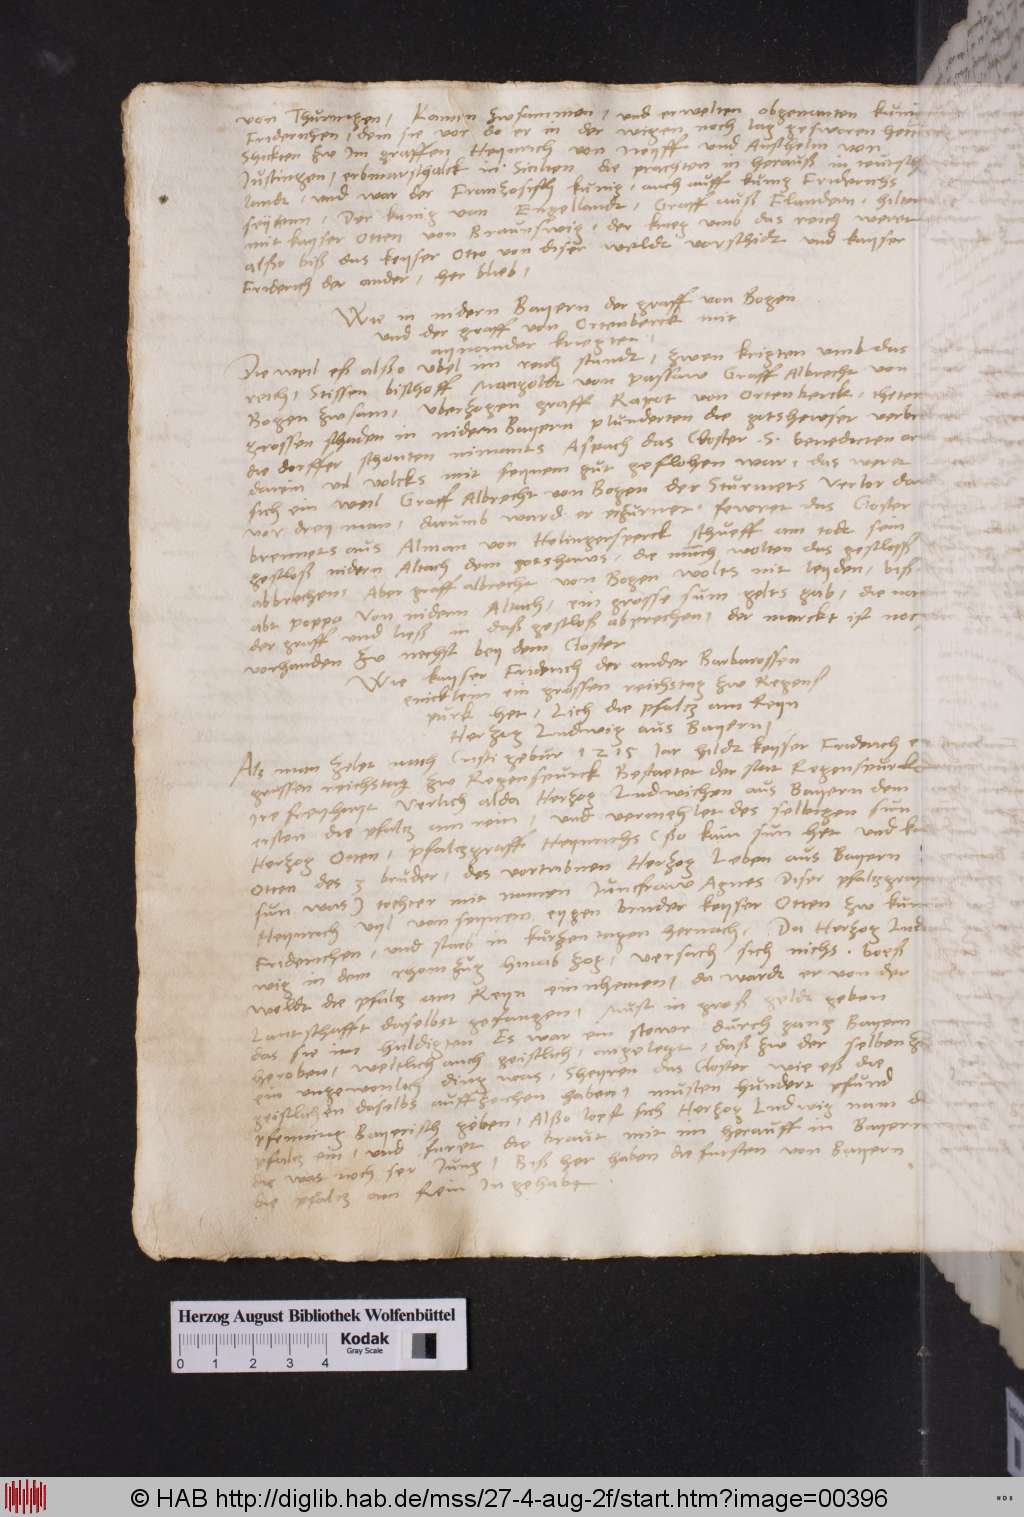 von Thüringen, Kamen zwsammen, und erwelten obgenanten kunig
Friderichen, dem sie vor do er in der wigen noch lag gesworen hetten
Schickten zw Im graffen Heynrich von Neyff und Anshelm von
Justingen, erbmarschalck in Sicilien die prachten in herauß in teutsch
landt, und war der Franzosisch künig, auch auff kunig Friderichs
seytten, Der kunig von Engellandt, Graff auß Flandern, hilten
mit kayser Otten von Braunswig, der krieg umb das reich weret
alßo biß das keyser Otto von diser weldt vorschidt und kayser
Friderich der ander, her blieb,
Wie in nidern Bayern der graff von Bogen
und der graff von Ortenberck mit
aynander kriegten,
Die weil eß alßo ubel im reich stundt, zwen krigten umb das
reich, Stissen bischoff Mangoldt von passaw Graff Albrecht von
Bogen zwsam, uberzogen graff Rapot von Ortenberck, theten
grossen schaden in nidern Bayern plunderten die gotshewser verbr
die dorffer schonten nimants Aspach das Closter .S. benedicten or
darein vil volcks mit seynem gut geflohen war, das weret
sich ein weil Graff Albrecht von Bogen der Sturmets verlor da
vor drey man, darumb ward er erzürnet, fewret das Closter
brennets aus Alman von Helingersperck schueff am todt sein
gestloß nidern Altach dem gotshaws, die münch wolten das gestloß
abbrechen, Aber graff albrecht von Bogen wolts nit leyden, biß
abt poppo von nidern Altach, ein grosse sum gelts gab, die nam
der graff und ließ in daß gestloß abprechen, der marckt ist noch
vorhanden zw nechst bey dem Closter
Wie kayser Friderich der ander Barbarossen
enicklein ein grossen reichstag zw Regens
purk het, Lich die pfalcz am Reyn
Herzog Ludwig aus Bayern,
Als man zelet nach Cristi gebur 1215 Jar hildt keyser Friderich ein
grossen reichstag zw Regenspurck Bestaetet der stat Regenspurck
ire freyhayt Verlich alda Herzog Ludwichen aus Bayern dem
ersten die pfalcz am rein, und vermehlet des selbigen sun
Herzog Otten, pfalczgraff Heynrichs (ßo kain sun het und k
Otten des 3 bruder, des vortribnen Herzog Leben aus Bayern
sun was) tochter mit namen Juncfraw Agnes Diser pfalczgraff
Heynrich viel von seynem eygen bruder keyser Otten zw kunig
Friderichen, und starb in kurzen tagen hernach, Da Herzog Lud
wig in dem rhom zug hinab zog, versach sich nichs boeß
woldt die pfalcz am Reyn einnhemen, da wardt er von der
Lantschafft daselbst gefangen, Must in groß geldt geben
das sie im huldigten Es war ein stewr durch ganz Bayern
herobern, weltlich auch geistlich, angelegt, daß zw der selben z
ein ungewonlich ding was, Sheyren das Closter wie eß die
geistlichen daselbs auffzeichen haben, musten hundert pfund
pfenning Bayerisch geben, Alßo loest sich Herzog Ludwig nam d
pfalcz ein, und furet die Braut mit im herauff in Bayern
die was noch ser Jung, Biß her haben die fursten von Bayern
die pfalcz am Rein In gehabt.
Herzog August Bibliothek Wolfenbüttel
Kodak
Gray Scale
0 1 2 3 4
© HAB http://diglib.hab.de/mss/27-4-aug-2f/start.htm?image=00396